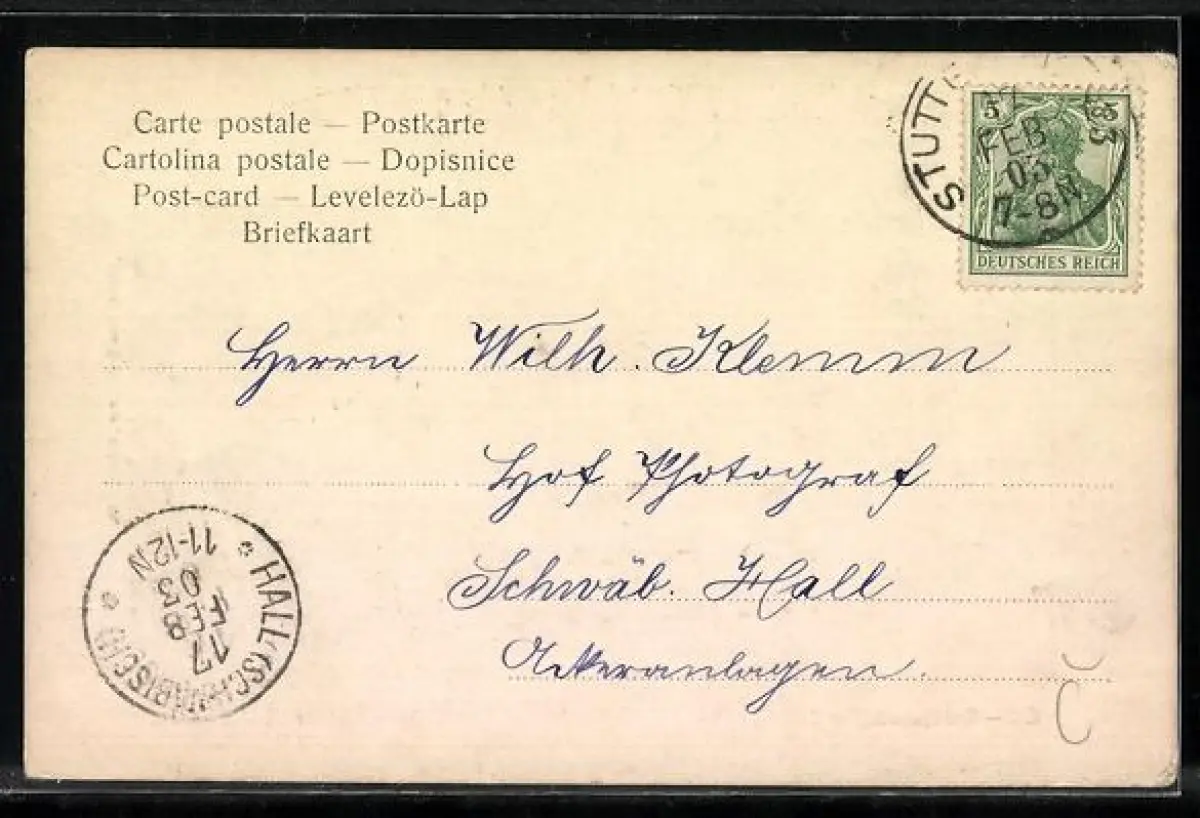 Carte postale — Postkarte
Cartolina postale — Dopisnice
Post-card — Levelezö-Lap
Briefkaart
5 5
FEB
03
7-8N
DEUTSCHES REICH
Herrn Wilh. Klemm
Hof Photograf
Schwäb. Hall
Ackeranlagen.
HALL (SCHWÄBISCH)
17
FEB
03
11-12N
Č